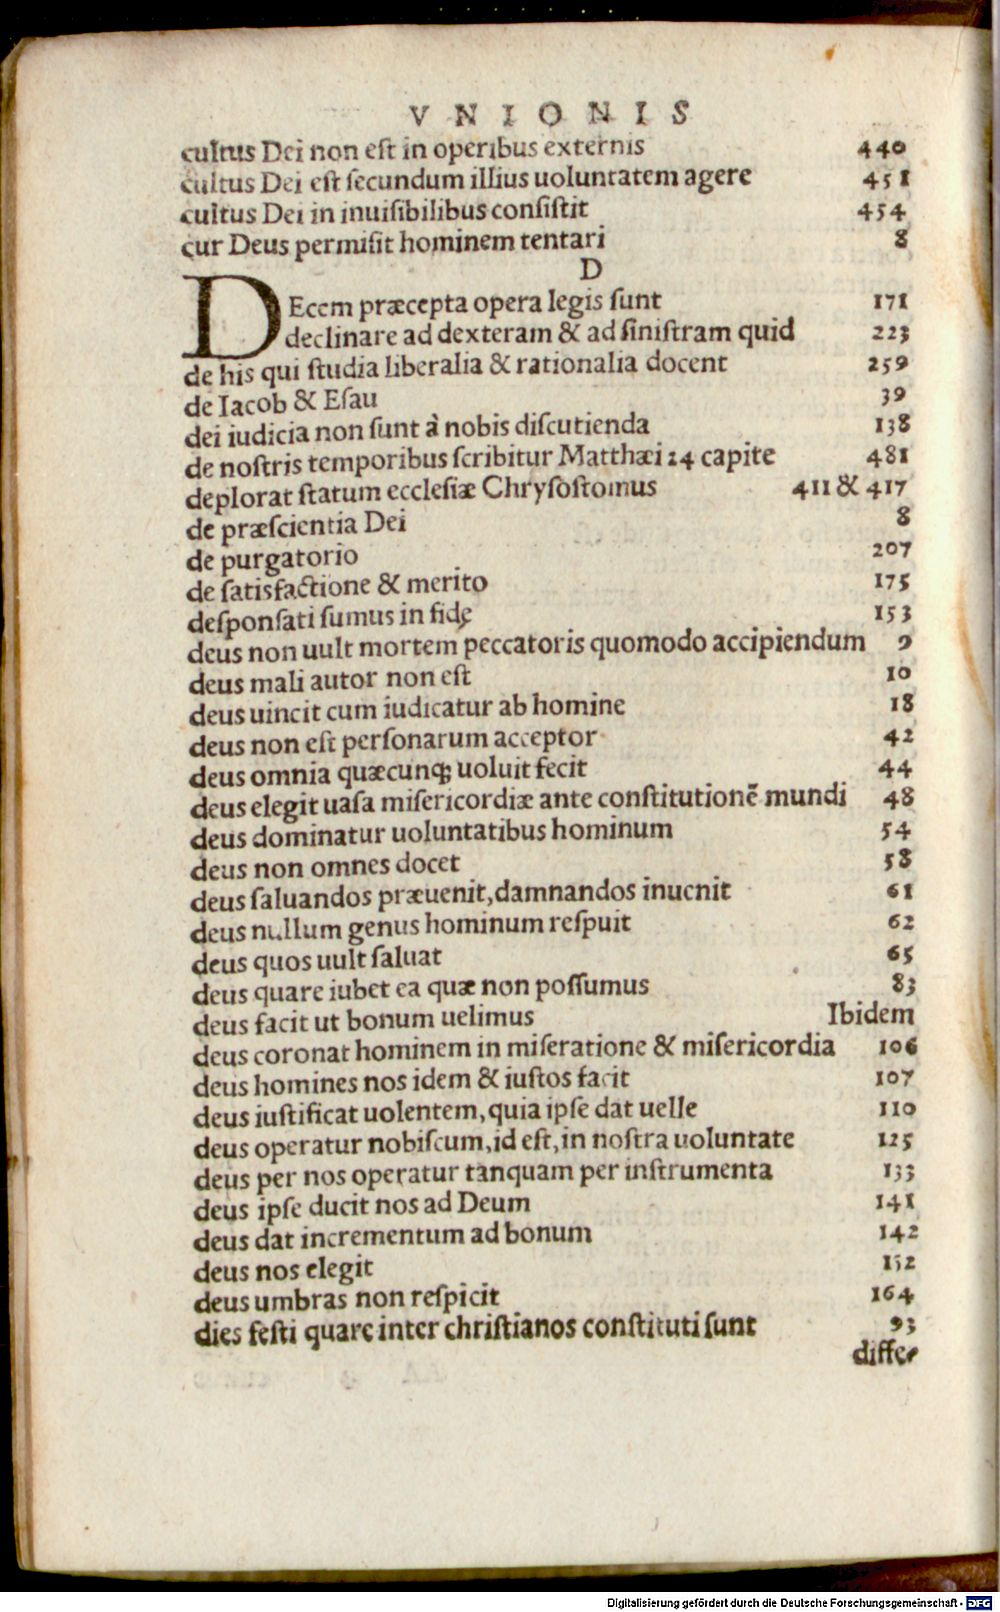 VNIONIS
cultus Dei non est in operibus externis 440
cultus Dei est secundum illius uoluntatem agere 451
cultus Dei in inuisibilibus consistit 454
cur Deus permisit hominem tentari 8
D
DEcem præcepta opera legis sunt 171
declinare ad dexteram & ad sinistram quid 223
de his qui studia liberalia & rationalia docent 259
de Iacob & Esau 39
dei iudicia non sunt à nobis discutienda 138
de nostris temporibus scribitur Matthæi 24 capite 481
deplorat statum ecclesiæ Chrysostomus 411 & 417
de præscientia Dei 8
de purgatorio 207
de satisfactione & merito 175
desponsati sumus in fide 153
deus non uult mortem peccatoris quomodo accipiendum 9
deus mali autor non est 10
deus uincit cum iudicatur ab homine 18
deus non est personarum acceptor 42
deus omnia quæcunq; uoluit fecit 44
deus elegit uasa misericordiæ ante constitutionē mundi 48
deus dominatur uoluntatibus hominum 54
deus non omnes docet 58
deus saluandos præuenit, damnandos inuenit 61
deus nullum genus hominum respuit 62
deus quos uult saluat 65
deus quare iubet ea quæ non possumus 83
deus facit ut bonum uelimus Ibidem
deus coronat hominem in miseratione & misericordia 106
deus homines nos idem & iustos facit 107
deus iustificat uolentem, quia ipse dat uelle 110
deus operatur nobiscum, id est, in nostra uoluntate 125
deus per nos operatur tanquam per instrumenta 133
deus ipse ducit nos ad Deum 141
deus dat incrementum ad bonum 142
deus nos elegit 152
deus umbras non respicit 164
dies festi quare inter christianos constituti sunt 93
diffe-
Digitalisierung gefördert durch die Deutsche Forschungsgemeinschaft - DFG